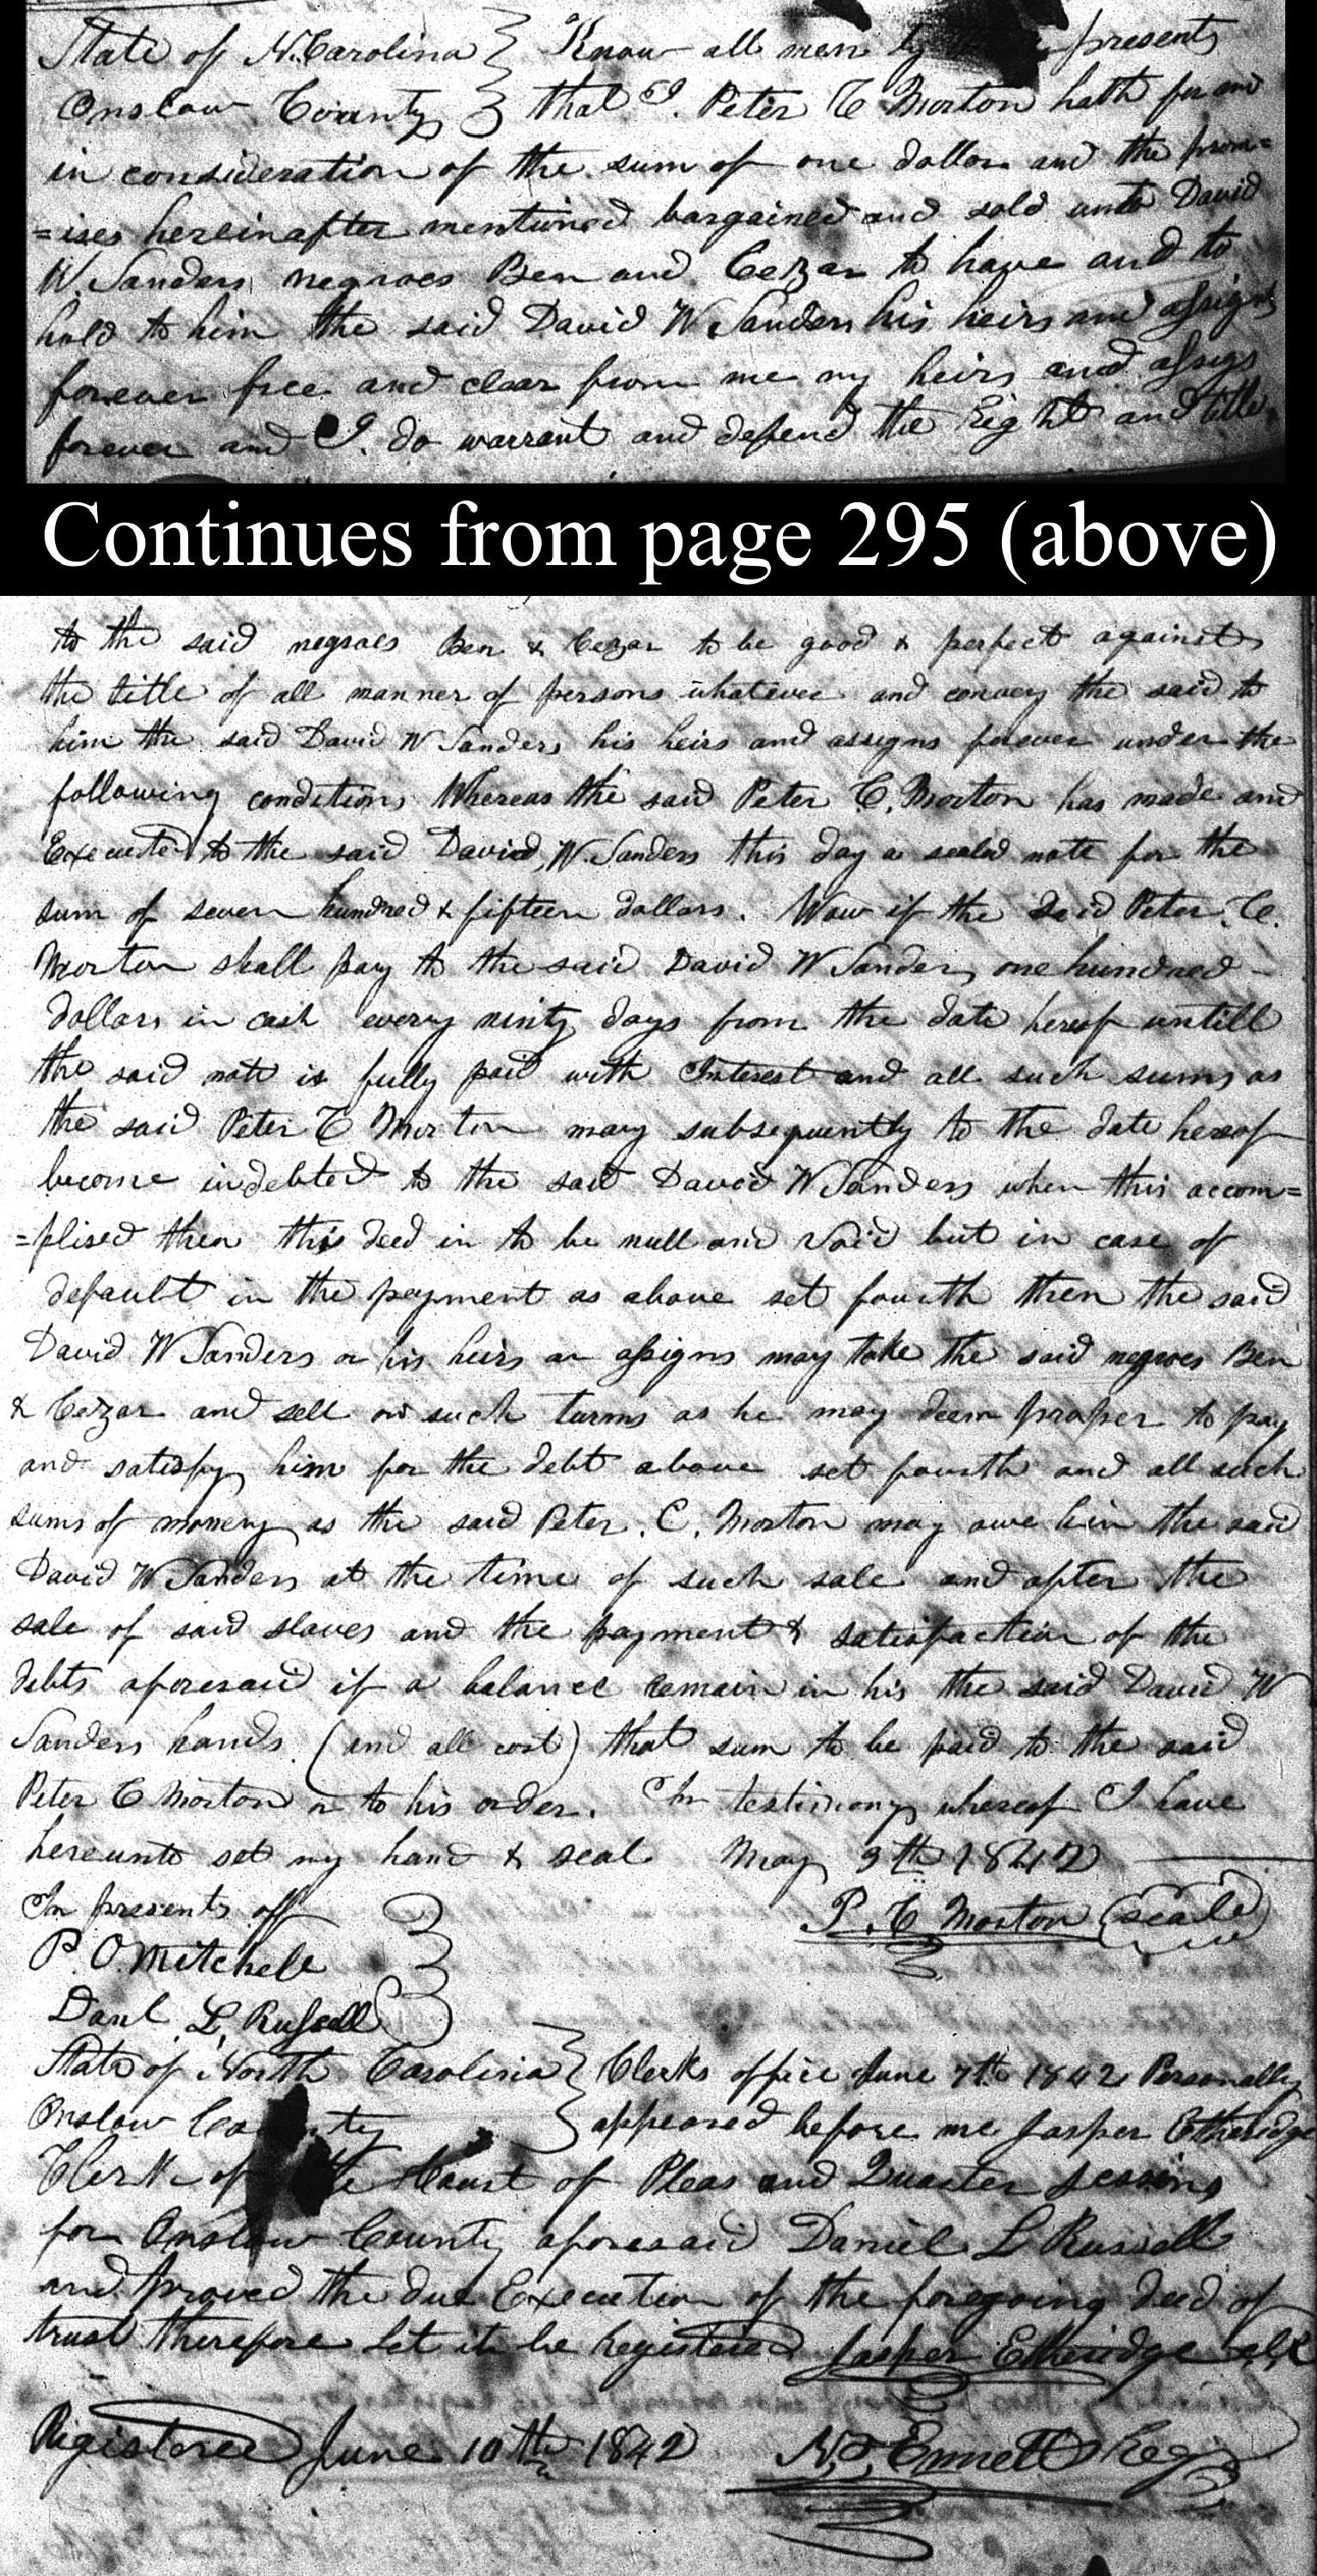 State of N. Carolina } Know all men by presents
Onslow County } that I. Peter C Morton hath for and
in consideration of the sum of one dollar and the prom=
=ises hereinafter mentioned bargained and sold unto David
W. Sanders negroes Ben and Cezar to have and to
hold to him the said David W Sanders his heirs and assigns
forever free and clear from me my heirs and assigs
forever and I. do warrant and defend the Right and title
Continues from page 295 (above)
to the said negroes Ben & Cezar to be good & perfect against
the title of all manner of persons whatever and convey the said to
him the said David W Sanders his heirs and assigns forever under the
following conditions Whereas the said Peter C. Morton has made and
Executed to the said David, W. Sanders this day a sealed note for the
sum of seven hundred & fifteen dollars. Now if the said Peter. C.
Morton shall pay to the said David W Sanders one hundred
dollars in cash every ninty days from the date hereof untill
the said note is fully paid with Interest and all such sums as
the said Peter C Morton may subsequently to the date hereof
become indebted to the said David W Sanders when this accom=
=plised then this deed in to be null and void but in case of
default in the payment as above set fourth then the said
David W Sanders or his heirs or assigns may take the said negroes Ben
& Cezar and sell on such turms as he may deem proper to pay
and satisfy him for the debt above set fourth and all such
sums of money as the said Peter. C. Morton may owe him the said
David W Sanders at the time of such sale and after the
sale of said slaves and the payment & satisfaction of the
debts aforesaid if a balance remain in his the said David W
Sanders hands (and all cost) that sum to be paid to the said
Peter C Morton or to his order. In testimony whereof I have
hereunto set my hand & seal May 9th 1842
In presents off P. C Morton (seale)
P. O. Mitchell
Danl. L. Russell
State of North Carolina } Clerks office June 7th 1842 Personally
Onslow County } appeared before me Jasper Etheridge
Clerk of the Court of Pleas and Quarter sessions
for Onslow County aforesaid Daniel L Russell
and proved the due Execution of the foregoing deed of
trust therefore let it be registered Jasper Etheridge clk
Registered June 10th 1842 N. Ennett Reg